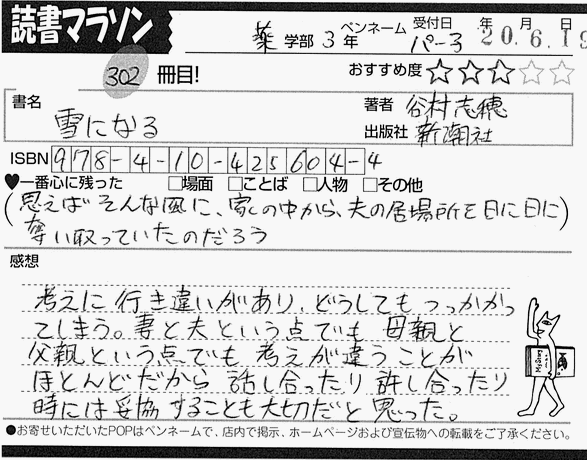 読書マラソン
薬 学部 3 年 ペンネーム パー子 受付日 年 月 日
20.6.19
302 冊目!
おすすめ度 ★★★☆☆
書名 雪になる
著者 谷村志穂
出版社 新潮社
ISBN 978-4-10-425604-4
♥一番心に残った □場面 □ことば □人物 □その他
(思えばそんな風に、家の中から、夫の居場所を日に日に)
奪い取っていたのだろう
感想
考えに行き違いがあり、どうしてもつっかかっ
てしまう。妻と夫という点でも 母親と
父親という点でも 考えが違うことが
ほとんどだから 話し合ったり 許し合ったり
時には妥協することも大切だと思った。
●お寄せいただいたPOPはペンネームで、店内で掲示、ホームページおよび宣伝物への転載をご了承ください。